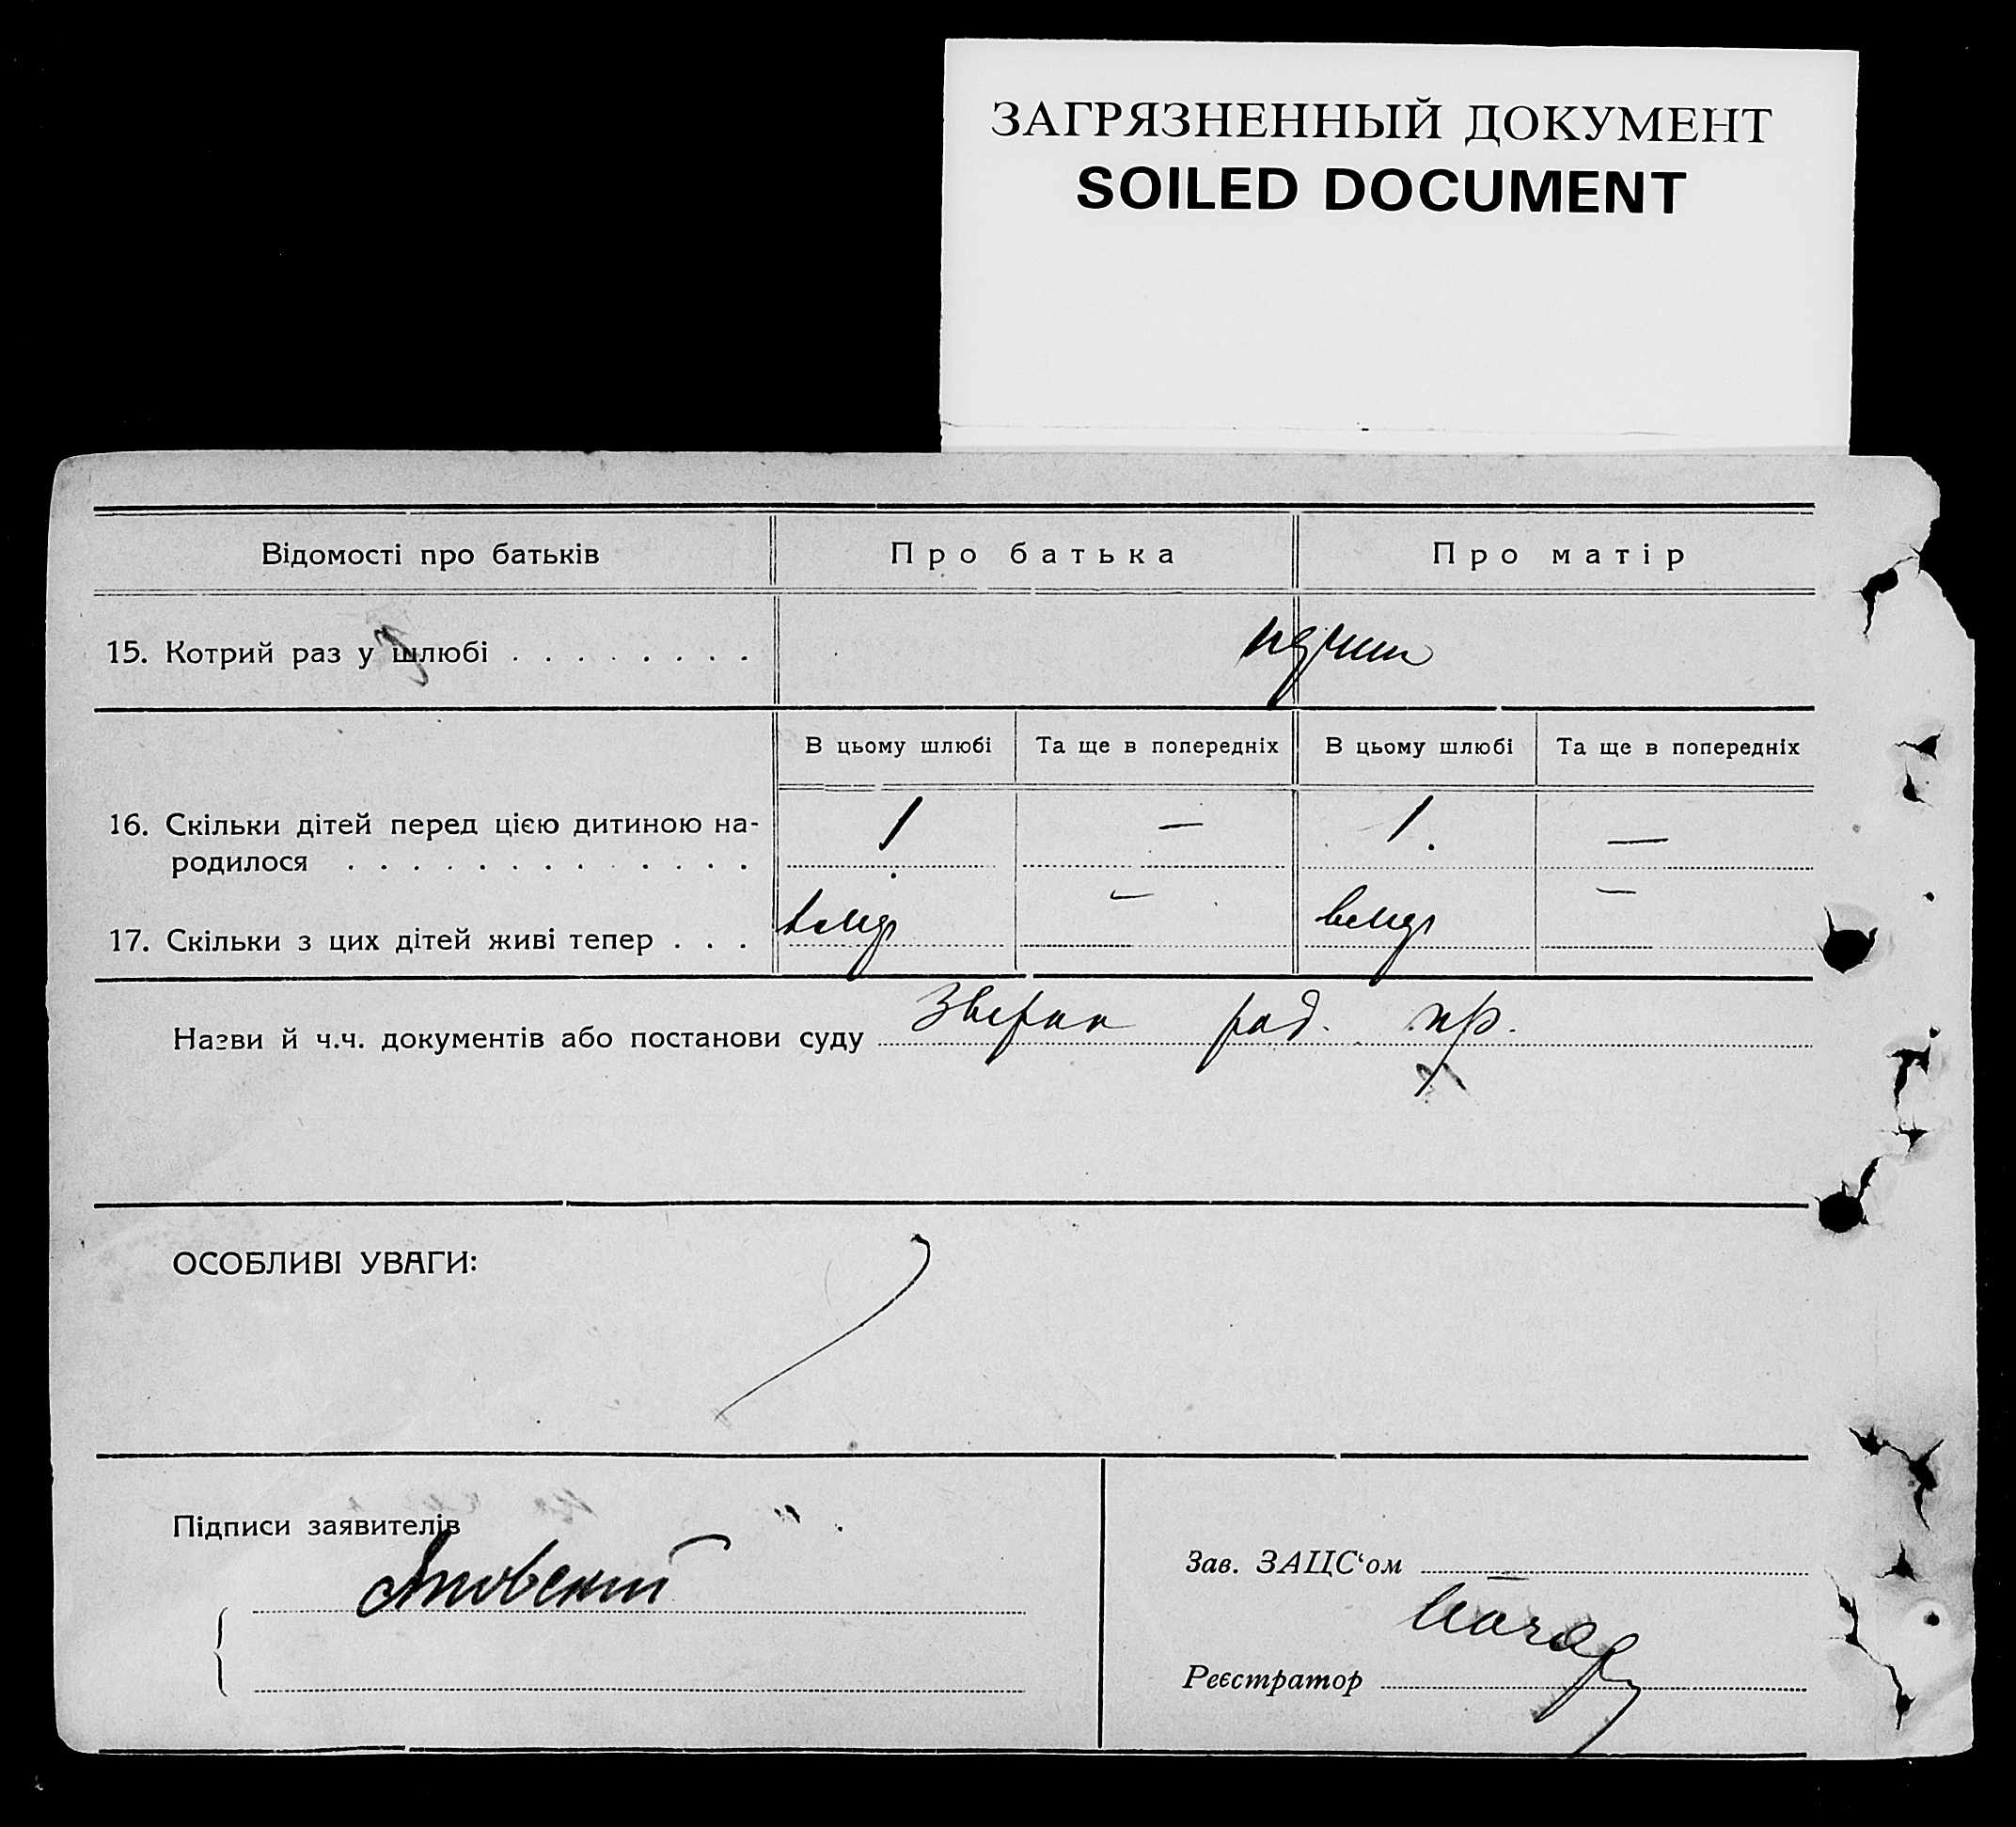 ЗАГРЯЗНЕННЫЙ ДОКУМЕНТ
SOILED DOCUMENT
Відомості про батьків Про батька Про матір
15. Котрий раз у шлюбі . . . . . . . .
В цьому шлюбі Та ще в попередніх В цьому шлюбі Та ще в попередніх
16. Скільки дітей перед цією дитиною на-
родилося . . . . . . . . . . . . . 1 — 1. —
17. Скільки з цих дітей живі тепер . . . — —
Назви й ч.ч. документів або постанови суду
ОСОБЛИВІ УВАГИ:
Підписи заявителів
Зав. ЗАЦС‘ом —
Реєстратор